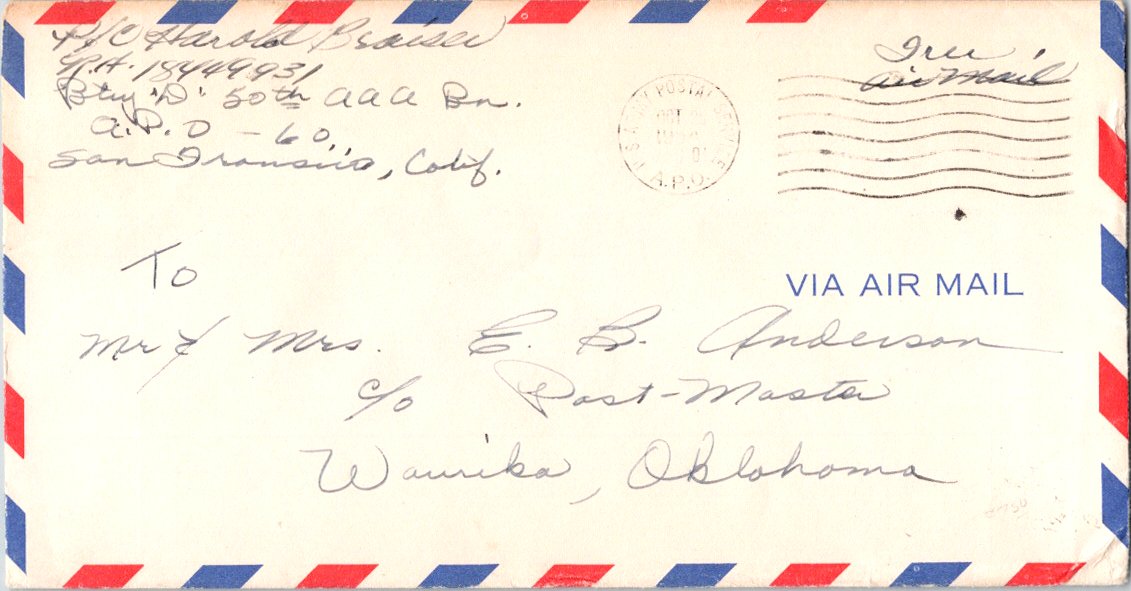 Pfc Harold Braiser
R.A. 18449931
Btry "D" 50th AAA Bn.
A.P.O - 60
San Fransisio, Calif.
Free
air Mail
U.S. ARMY POSTAL SERVICE
OCT
A.P.O.
To
VIA AIR MAIL
Mr & Mrs. E. B. Anderson
c/o Post-Master
Waurika, Oklahoma